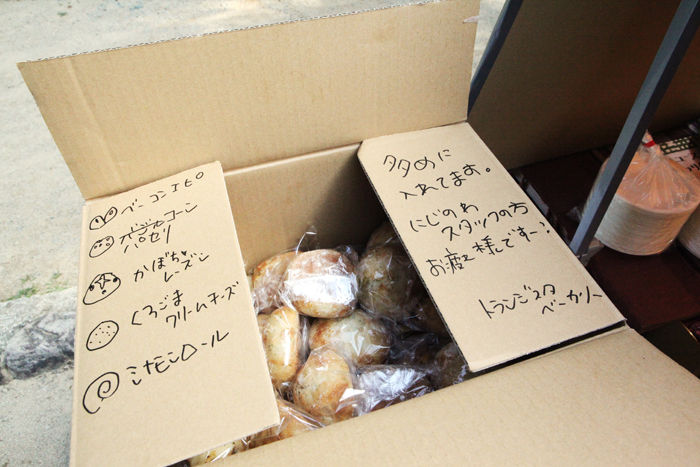 ベーコンエピ
コーン
パセリ
かぼちゃ
レーズン
くろごま
クリームチーズ
シナモンロール
多めに
入れてます。
にじのわ
スタッフの方
お疲れ様ですー!
トランジスタ
ベーカリー